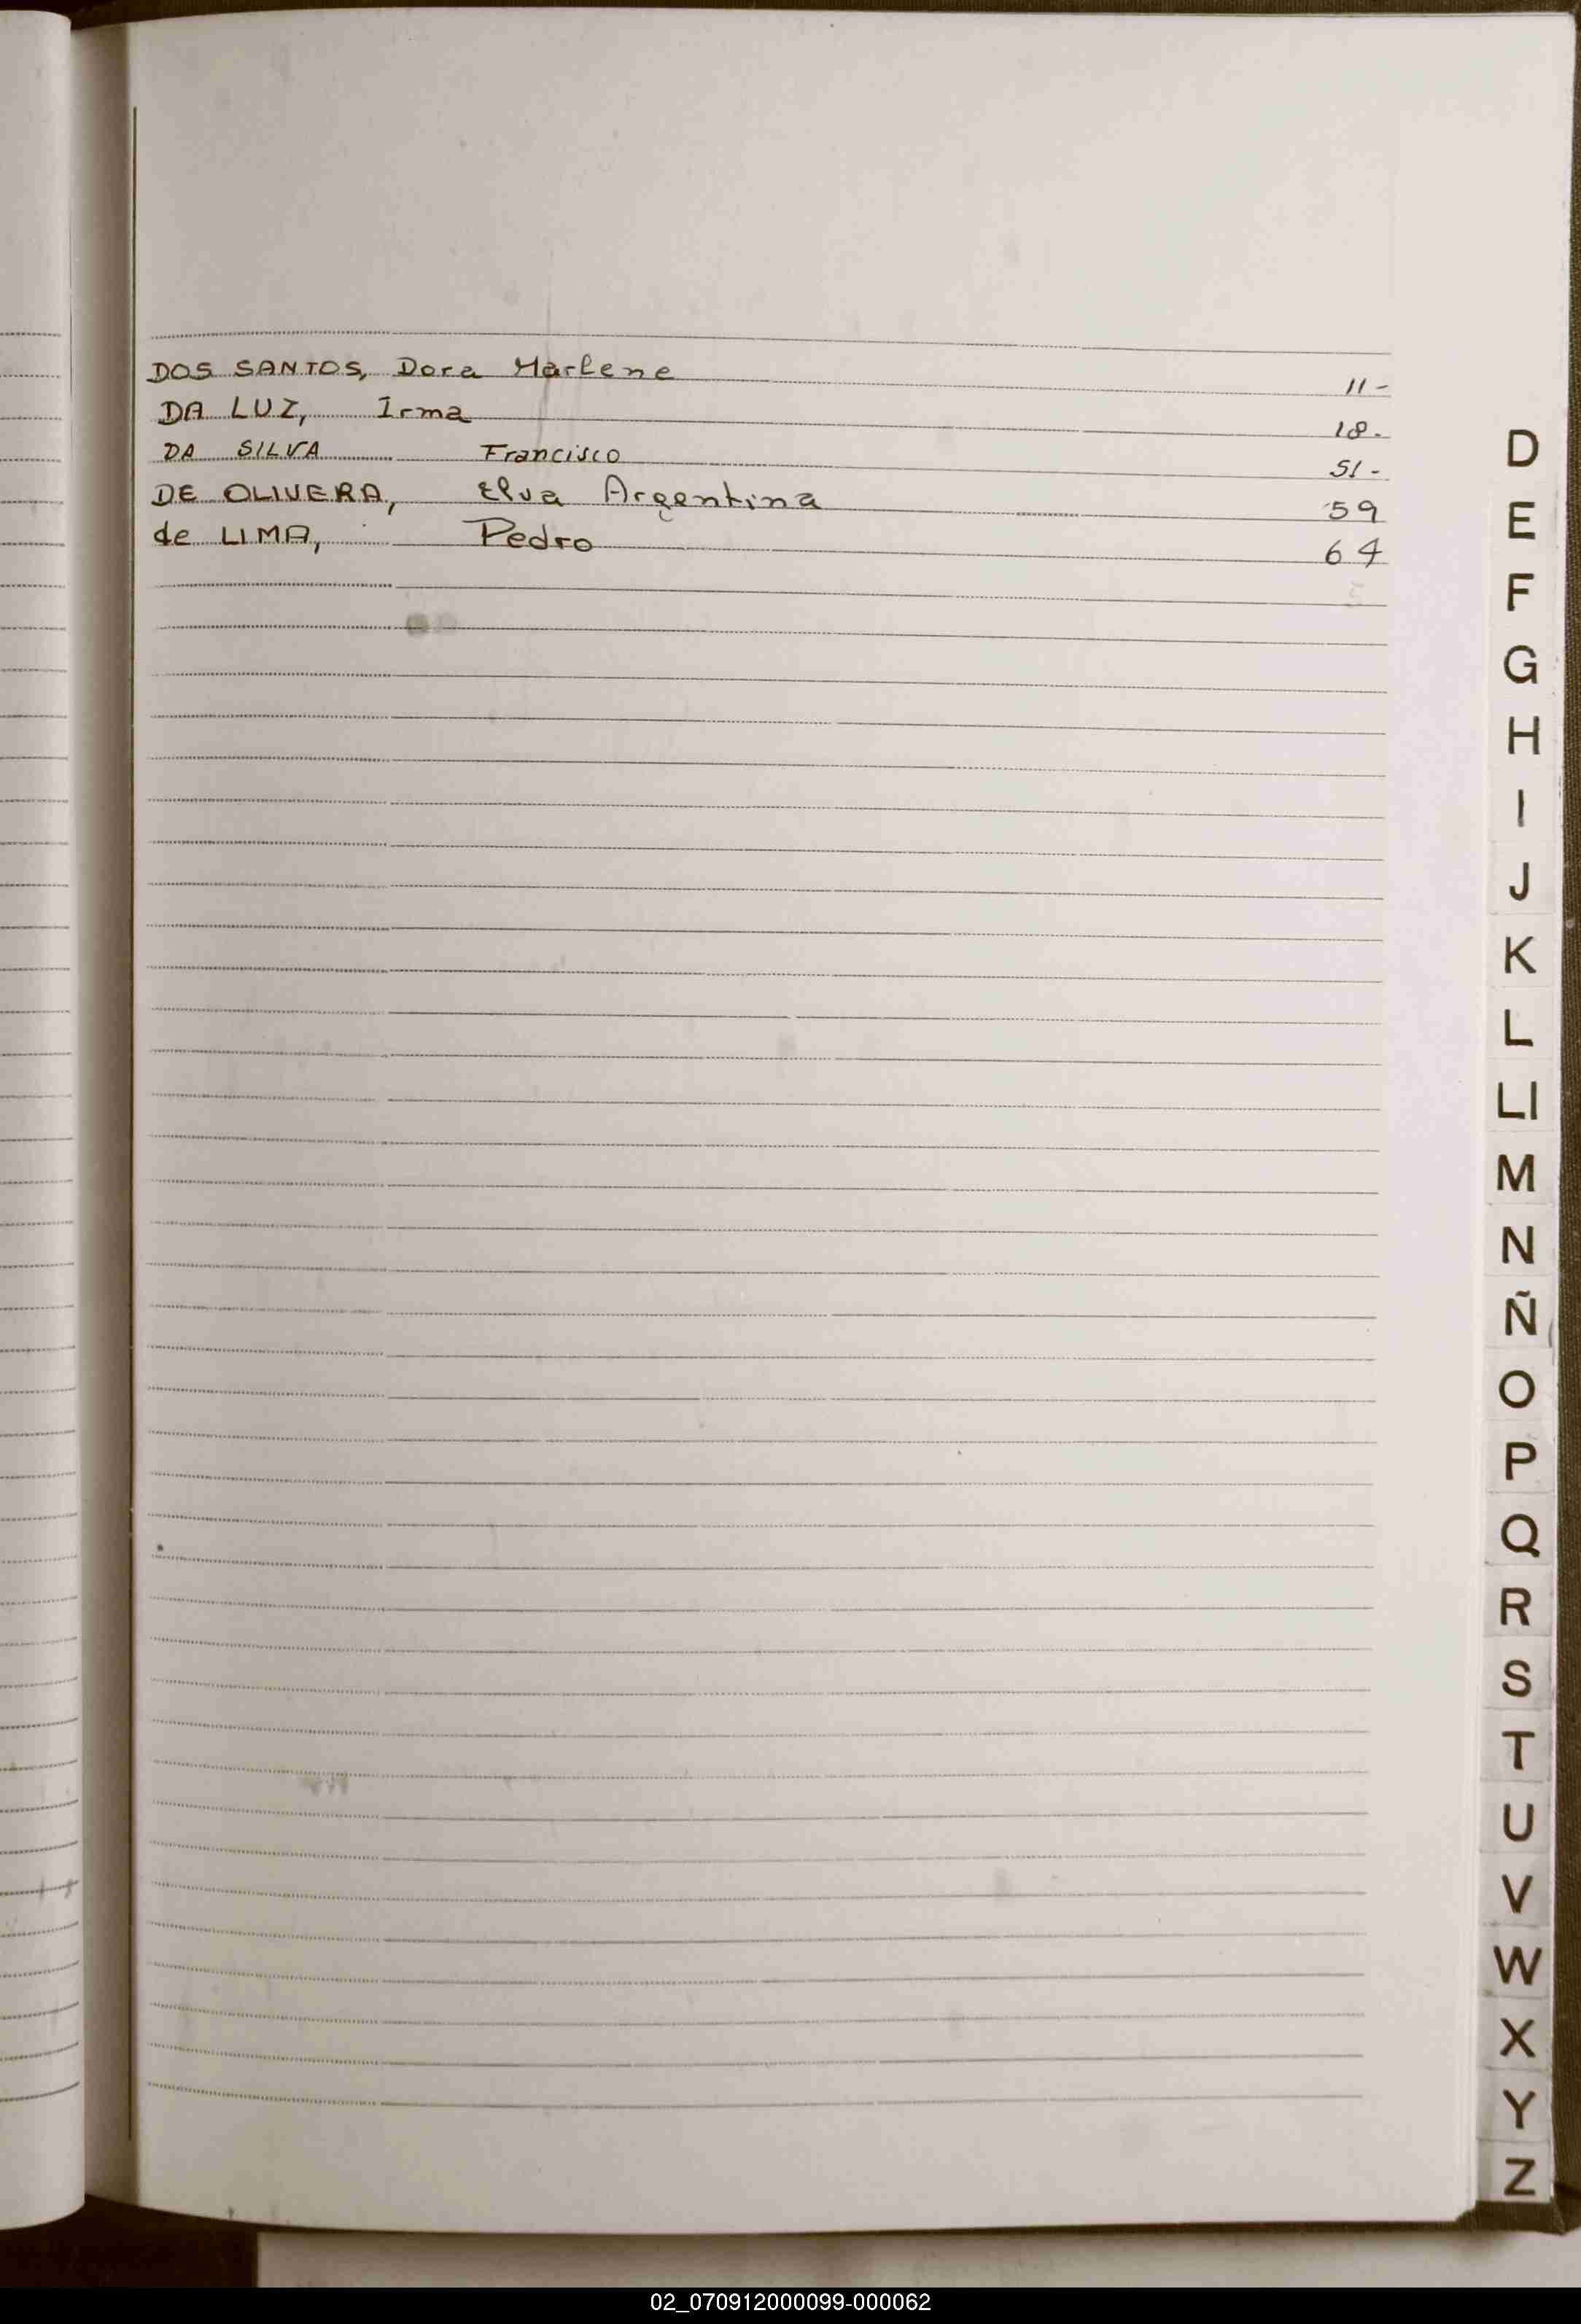 DOS SANTOS, Dora Marlene 11-
DA LUZ, Irma 18.
DA SILVA Francisco 51-
DE OLIVERA, Elva Argentina 59
de LIMA, Pedro 64
D
E
F
G
H
I
J
K
L
Ll
M
N
Ñ
O
P
Q
R
S
T
U
V
W
X
Y
Z
02_070912000099-000062